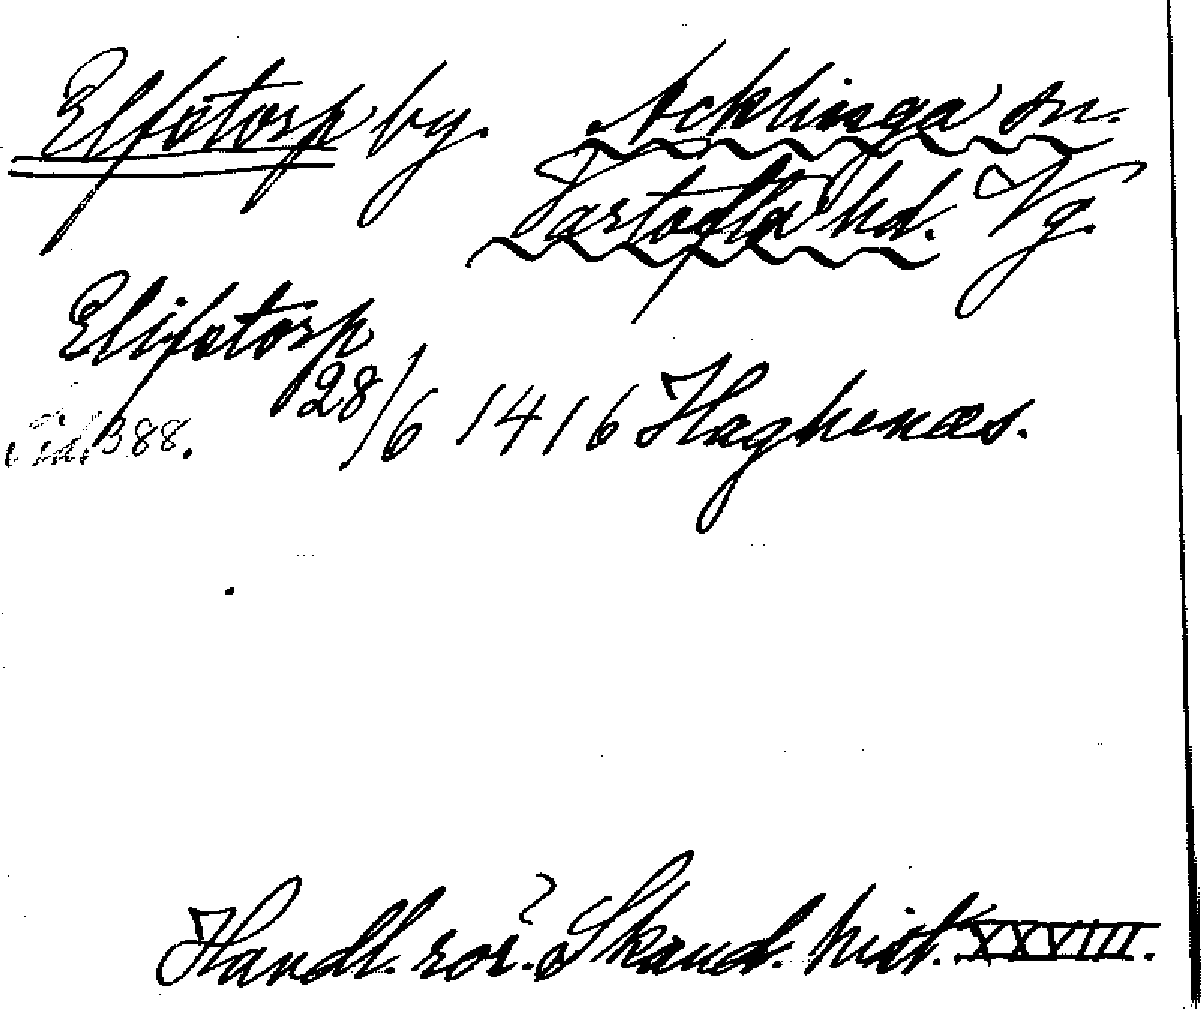 Elfstorp by. Acklinga sn.
Vartofta hd. Vg.
Elifstorp
28/6 1416 Haghenæs.
Sid. 388.
Handl. rör. Skand. hist. XXVIII.